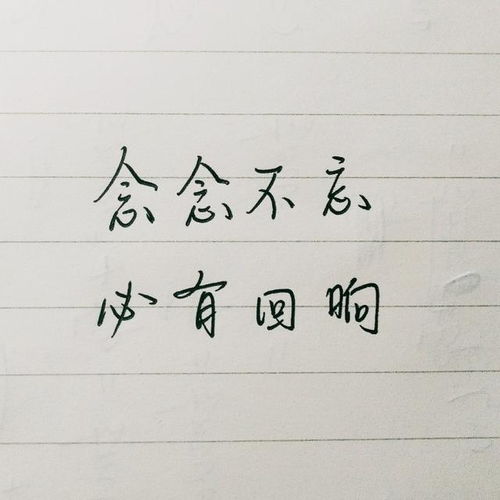 念念不忘
必有回晌